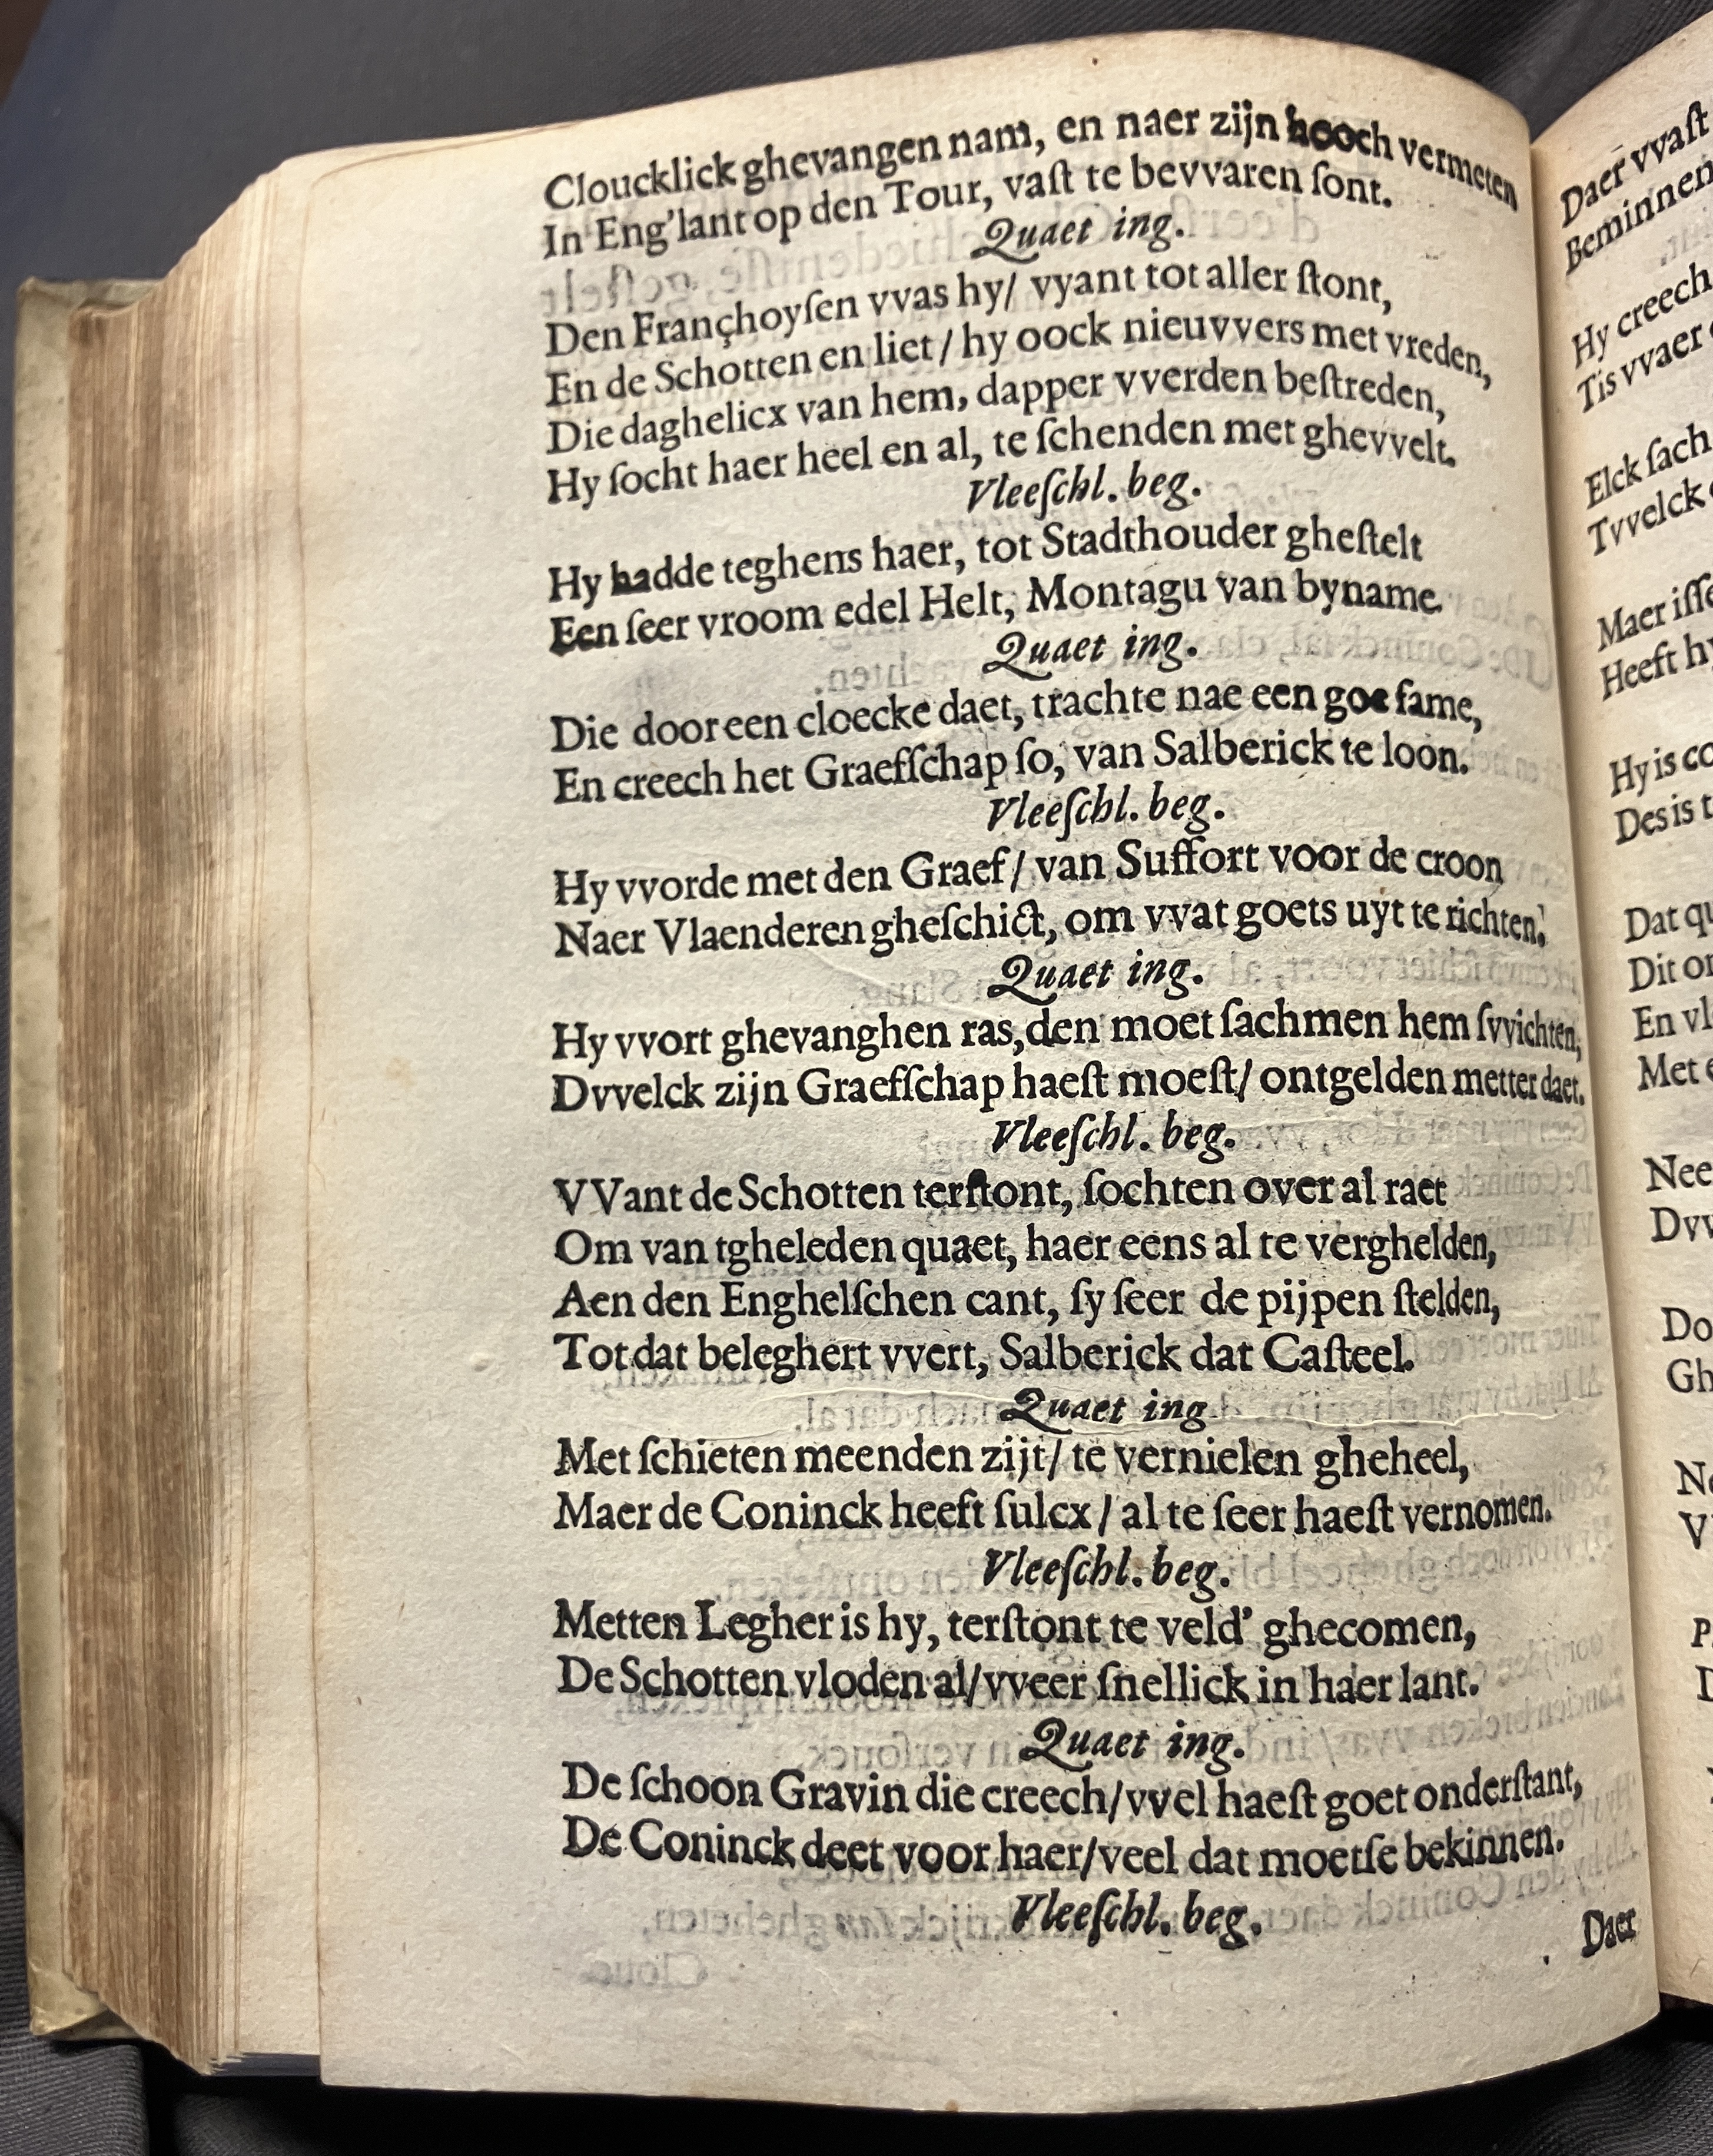 Cloucklick ghevangen nam, en naer zijn hooch vermeten
In Eng'lant op den Tour, vaſt te bevvaren ſont.
Quaet ing.
Den Françhoyſen vvas hy/ vyant tot aller ſtont,
En de Schotten en liet / hy oock nieuvvers met vreden,
Die daghelicx van hem, dapper vverden beſtreden,
Hy ſocht haer heel en al, te ſchenden met ghevvelt.
Vleeſchl. beg.
Hy hadde teghens haer, tot Stadthouder gheſtelt
Een ſeer vroom edel Helt, Montagu van byname.
Quaet ing.
Die door een cloecke daet, trachte nae een goe fame,
En creech het Graefſchap ſo, van Salberick te loon.
Vleeſchl. beg.
Hy vvorde met den Graef / van Suffort voor de croon
Naer Vlaenderen gheſchict, om vvat goets uyt te richten,
Quaet ing.
Hy vvort ghevanghen ras, den moet ſachmen hem ſvvichten,
Dvvelck zijn Graefſchap haeſt moeſt/ ontgelden metter daet.
Vleeſchl. beg.
VVant de Schotten terſtont, ſochten over al raet
Om van tgheleden quaet, haer eens al te verghelden,
Aen den Enghelſchen cant, ſy ſeer de pijpen ſtelden,
Tot dat beleghert vvert, Salberick dat Caſteel.
Quaet ing.
Met ſchieten meenden zijt/ te vernielen gheheel,
Maer de Coninck heeft ſulcx / al te ſeer haeſt vernomen.
Vleeſchl. beg.
Metten Legher is hy, terſtont te veld' ghecomen,
De Schotten vloden al/ vveer ſnellick in haer lant.
Quaet ing.
De ſchoon Gravin die creech/ vvel haeſt goet onderſtant,
De Coninck deet voor haer/ veel dat moetſe bekinnen.
Vleeſchl. beg.
Daer
Daer vvaſt
Beminnen
Hy creech
Tis vvaer
Elck ſach
Tvvelck
Maer iſſe
Heeft hy
Hy is
Des is
Dat
Dit
En
Met
Nee